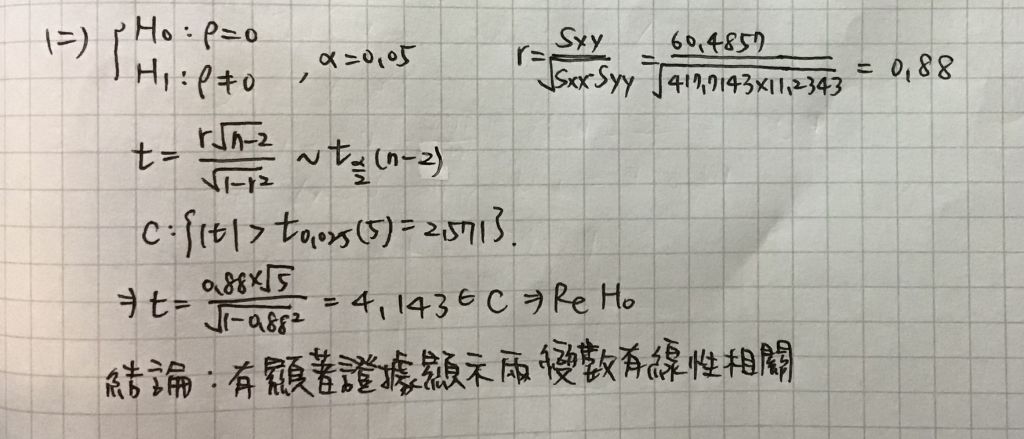 (二) { H₀: ρ=0
H₁: ρ≠0 , α=0.05 r = Sxy/√SxxSyy = 60.4857/√417.7143×11.2343 = 0.88
t = r√n-2/√1-r² ~ t_{α/2}(n-2)
C: {|t| > t₀.₀₂₅(5) = 2.571}.
⇒ t = 0.88×√5/√1-0.88² = 4.143 ∈ C ⇒ Re H₀
結論:有顯著證據顯示兩變數有線性相關